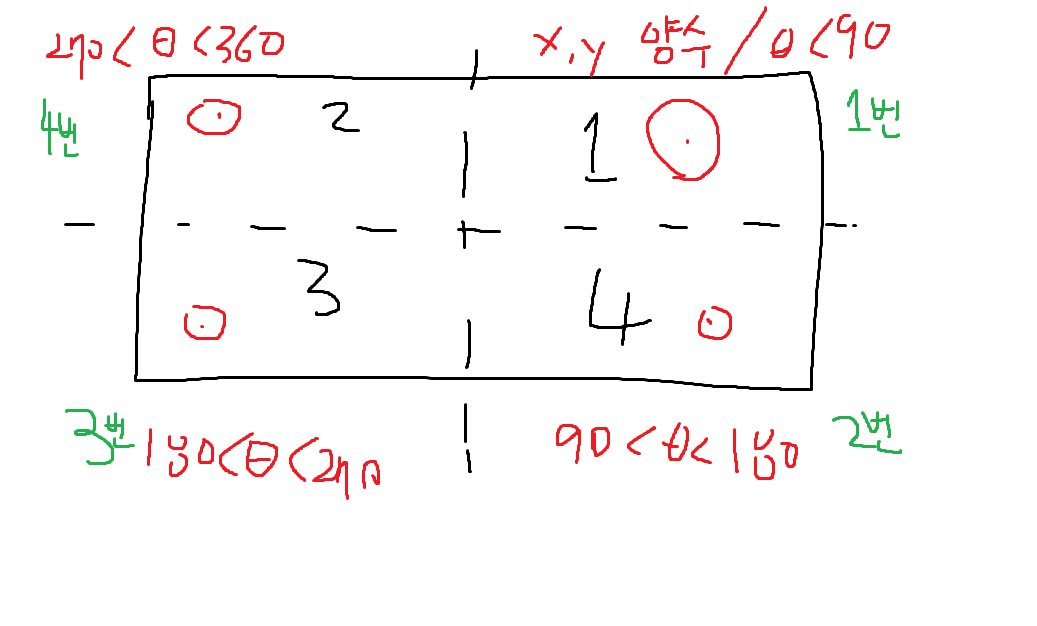 270 < θ < 360
x, y 양수 / θ < 90
4번
2
1
1번
3
4
3번
180 < θ < 270
90 < θ < 180
2번